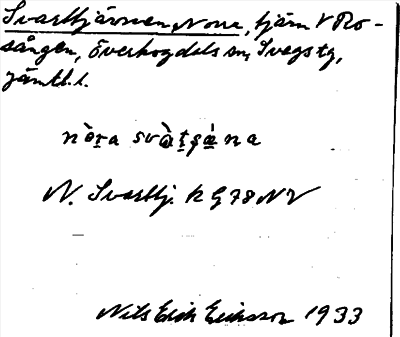 Svarttjärnen, Norra, tjärn V Ro-
sången, Överhogdals sn, Svegs tg,
Jämtl. l.
nòra svàtçàna
N. Svarttj. k G 78 NV
Nils Erik Eriksson 1933